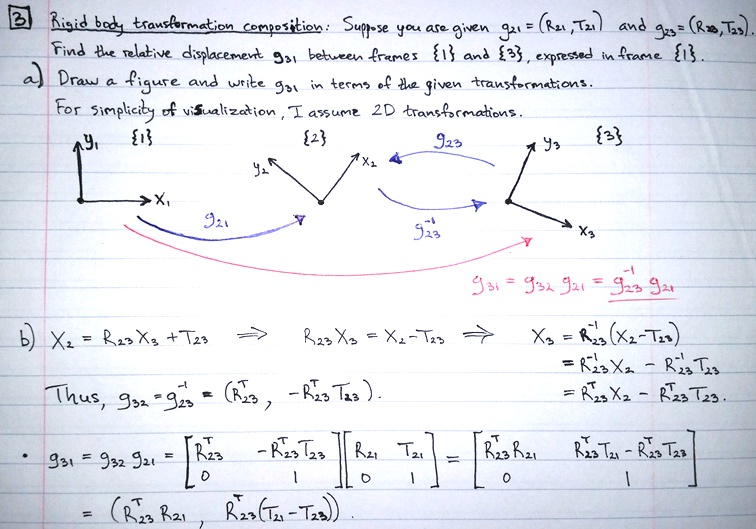 3 Rigid body transformation composition: Suppose you are given g₂₁ = (R₂₁, T₂₁) and g₂₃ = (R₂₃, T₂₃).
Find the relative displacement g₃₁ between frames {1} and {3}, expressed in frame {1}.
a) Draw a figure and write g₃₁ in terms of the given transformations.
For simplicity of visualization, I assume 2D transformations.
y₁ {1} {2} g₂₃ y₃ {3}
y₂ x₂
x₁ g₂₁ g₂₃⁻¹ x₃
g₃₁ = g₃₂ g₂₁ = g₂₃⁻¹ g₂₁
b) X₂ = R₂₃X₃ + T₂₃ ⇒ R₂₃X₃ = X₂ - T₂₃ ⇒ X₃ = R₂₃⁻¹(X₂ - T₂₃)
= R₂₃⁻¹X₂ - R₂₃⁻¹T₂₃
Thus, g₃₂ = g₂₃⁻¹ = (R₂₃ᵀ, -R₂₃ᵀT₂₃). = R₂₃ᵀX₂ - R₂₃ᵀT₂₃.
• g₃₁ = g₃₂ g₂₁ = [R₂₃ᵀ -R₂₃ᵀT₂₃] [R₂₁ T₂₁] = [R₂₃ᵀR₂₁ R₂₃ᵀT₂₁ - R₂₃ᵀT₂₃]
0 1 0 1 0 1
= (R₂₃ᵀR₂₁, R₂₃ᵀ(T₂₁ - T₂₃)).